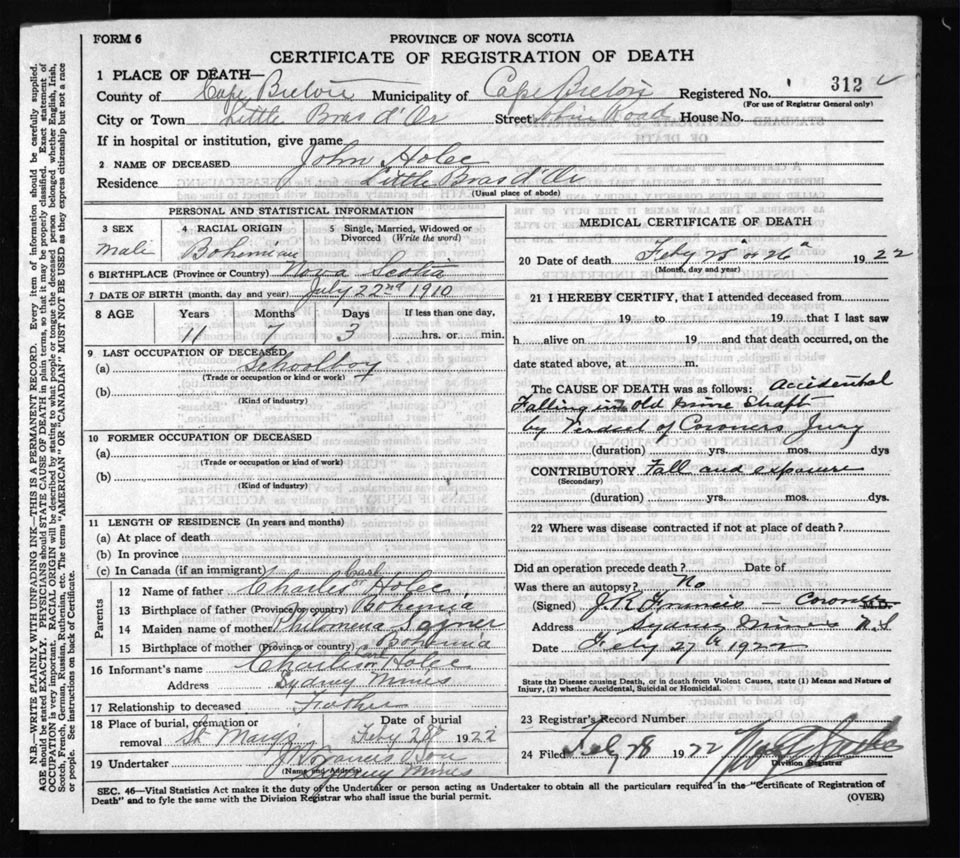 FORM 6
PROVINCE OF NOVA SCOTIA
CERTIFICATE OF REGISTRATION OF DEATH
1 PLACE OF DEATH—
County of Cape Breton Municipality of Cape Breton Registered No. 312
(For use of Registrar General only)
City or Town Little Bras d'Or Street Main Road House No.
If in hospital or institution, give name
2 NAME OF DECEASED John Holec
Residence Little Bras d'Or
(Usual place of abode)
PERSONAL AND STATISTICAL INFORMATION
3 SEX
male
4 RACIAL ORIGIN
Bohemian
5 Single, Married, Widowed or Divorced (Write the word)
6 BIRTHPLACE (Province or Country) Nova Scotia
7 DATE OF BIRTH (month, day and year) July 22nd 1910
8 AGE Years Months Days If less than one day,
11 7 3 hrs. or min.
9 LAST OCCUPATION OF DECEASED
(a) Schoolboy
(Trade or occupation or kind or work)
(b)
(Kind of industry)
10 FORMER OCCUPATION OF DECEASED
(a)
(Trade or occupation or kind of work)
(b)
(Kind of industry)
11 LENGTH OF RESIDENCE (In years and months)
(a) At place of death
(b) In province
(c) In Canada (if an immigrant)
Parents
12 Name of father Charles or Karl Holec
13 Birthplace of father (Province or country) Bohemia
14 Maiden name of mother Philomena
15 Birthplace of mother (Province or country) Bohemia
16 Informant's name Charles or Karl Holec
Address Sydney Mines
17 Relationship to deceased Father
18 Place of burial, cremation or removal St Mary's
Date of burial Feby 28th 1922
19 Undertaker J. Francis Son
(Name and Address) Sydney Mines
MEDICAL CERTIFICATE OF DEATH
20 Date of death Feby 25th or 26th 1922
(Month, day and year)
21 I HEREBY CERTIFY, that I attended deceased from
19 to 19 that I last saw
h alive on 19 and that death occurred, on the
date stated above, at m.
The CAUSE OF DEATH was as follows: Accidental
Falling in old mine shaft
by Verdict of Coroners Jury
(duration) yrs. mos. dys
CONTRIBUTORY Fall and exposure
(Secondary)
(duration) yrs. mos. dys.
22 Where was disease contracted if not at place of death?
Did an operation precede death? Date of
Was there an autopsy? No
(Signed) J.R. Francis — Coroner M.D.
Address Sydney Mines N.S
Date Feby 27th 1922
State the Disease causing Death, or in death from Violent Causes, state (1) Means and Nature of
Injury, (2) whether Accidental, Suicidal or Homicidal.
23 Registrar's Record Number
24 Filed Feb 28 1922
Division Registrar
SEC. 46—Vital Statistics Act makes it the duty of the Undertaker or person acting as Undertaker to obtain all the particulars required in the "Certificate of Registration of
Death" and to fyle the same with the Division Registrar who shall issue the burial permit.
(OVER)
N.B.—WRITE PLAINLY WITH UNFADING INK—THIS IS A PERMANENT RECORD. Every item of information should be carefully supplied.
AGE should be stated EXACTLY. PHYSICIANS should STATE CAUSE OF DEATH in plain terms, so that it may be properly classified. Exact statement of
OCCUPATION is very important. RACIAL ORIGIN will be described by stating to what people or tongue the deceased person belonged whether English, Irish,
Scotch, French, German, Russian, Ruthenian, etc. The terms "AMERICAN" OR "CANADIAN" MUST NOT BE USED as they express citizenship but not a race
or people. See instructions on back of Certificate.